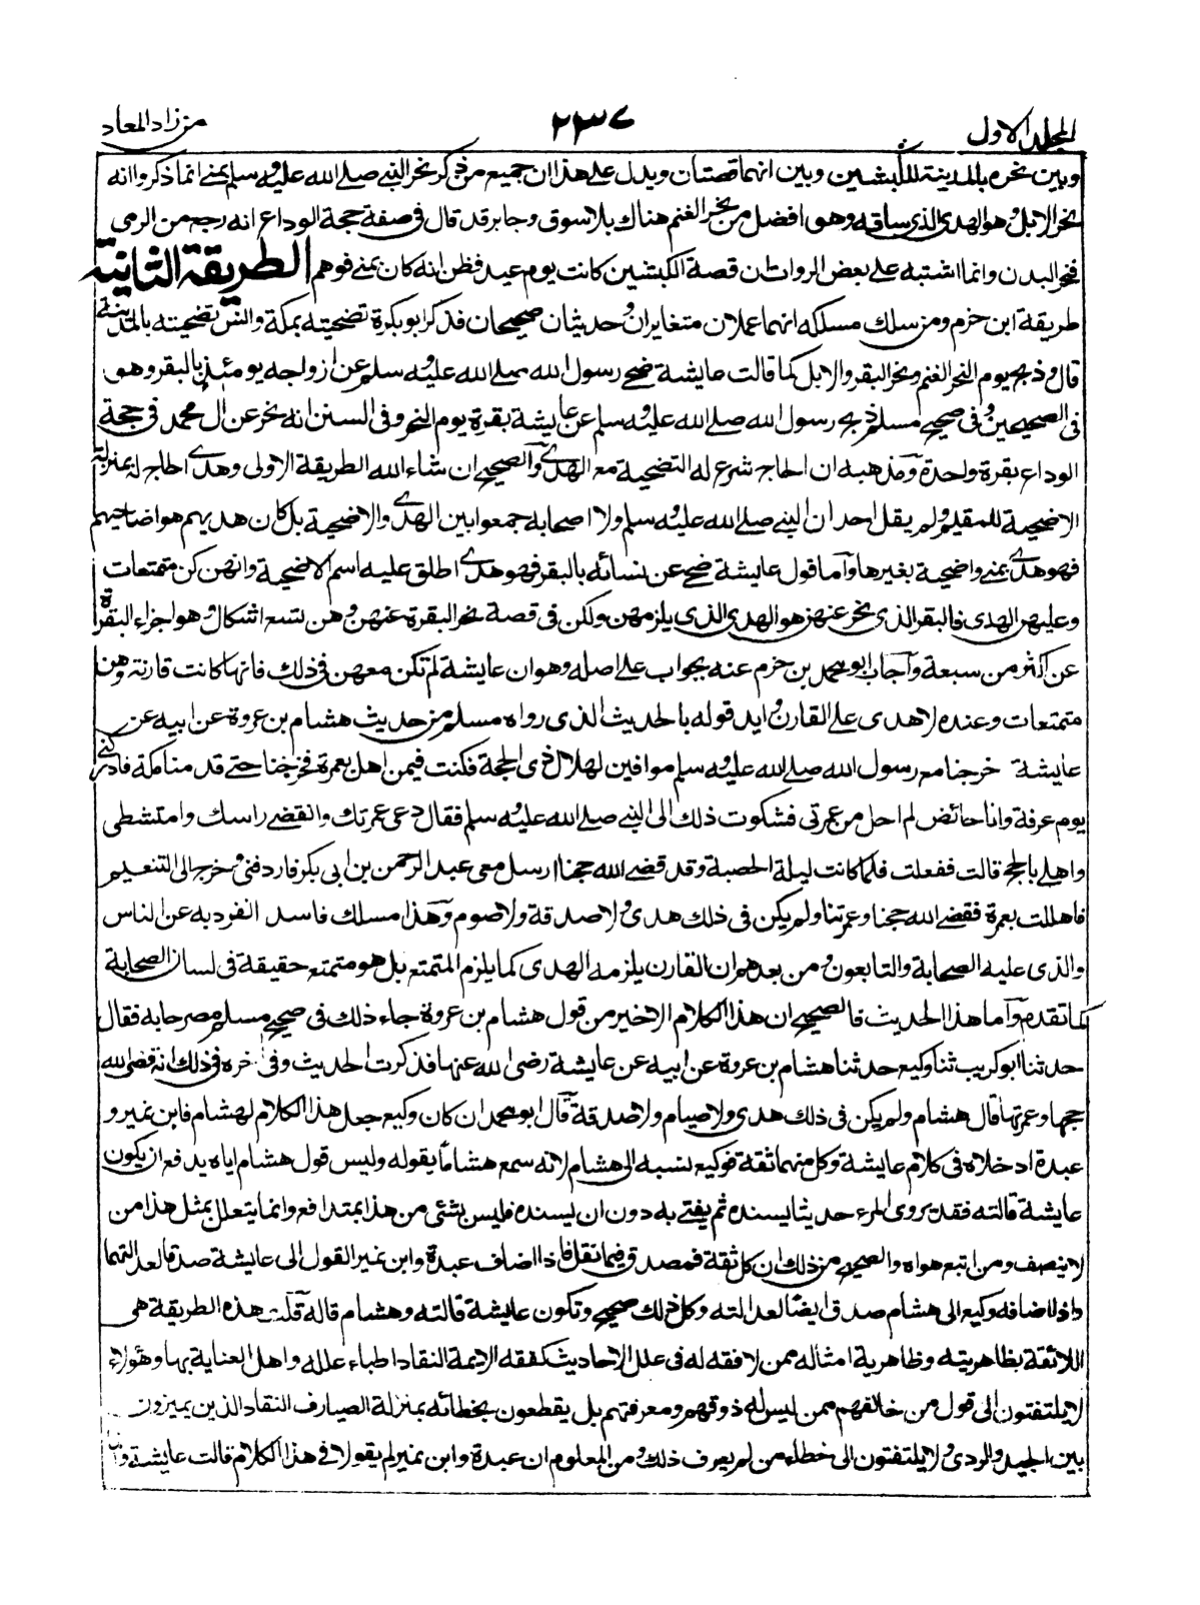 المجلد الاول
٢٣٧
من زاد المعاد
وبين نحره بالمدينة للكبشين وبين انهما قصتان ويدل على هذا ان جميع من ذكر نحر النبي صلى الله عليه وسلم بمنى انما ذكروا انه
نحر الابل وهو الهدى الذى ساقه وهو افضل من نحر الغنم هناك بلا سوق وجابر قد قال فى صفة حجة الوداع انه رجع من الرمى
فنحر البدن وانما اشتبه على بعض الروات ان قصة الكبشين كانت يوم عيد فظن انه كان بمنى فوهم الطريقة الثانية
طريقة ابن حزم ومن سلك مسلكه انهما عملان متغايران وحديثان صحيحان فذكر ابو بكرة تضحيته بمكة وانس تضحيته بالمدينة
قال وذبح يوم النحر الغنم ونحر البقر والابل كما قالت عايشة ضحى رسول الله صلى الله عليه وسلم عن ازواجه يومئذ بالبقر وهو
فى الصحيحين وفى صحيح مسلم ذبح رسول الله صلى الله عليه وسلم عن عايشة بقرة يوم النحر وفى السنن انه نحر عن ال محمد فى حجة
الوداع بقرة واحدة ومذهبه ان الحاج شرع له التضحية مع الهدى والصحيح ان شاء الله الطريقة الاولى وهدى الحاج له بمنزلة
الاضحية للمقيم ولم يقل احد ان النبي صلى الله عليه وسلم ولا اصحابه جمعوا بين الهدى والاضحية بل كان هديهم هو اضاحيهم
فهو هدى بمنى واضحية بغيرها واما قول عايشة ضحى عن نسائه بالبقر فهو هدى اطلق عليه اسم الاضحية وانهن كن متمتعات
وعليهن الهدى فالبقر الذى نحر عنهن هو الهدى الذى يلزمهن ولكن فى قصة نحر البقرة عنهن وهن تسع اشكال وهو اجزاء البقرة
عن اكثر من سبعة واجاب ابو محمد بن حزم عنه بجواب على اصله وهو ان عايشة لم تكن معهن فى ذلك فانها كانت قارنة وهن
متمتعات وعنده لا هدى على القارن وايد قوله بالحديث الذى رواه مسلم من حديث هشام بن عروة عن ابيه عن
عايشة خرجنا مع رسول الله صلى الله عليه وسلم موافين لهلال ذى الحجة فكنت فيمن اهل بعمرة فخرجنا حتى قدمنا مكة فادركنى
يوم عرفة وانا حائض لم احل من عمرتى فشكوت ذلك الى النبي صلى الله عليه وسلم فقال دعى عمرتك وانقضى راسك وامتشطى
واهلى بالحج قالت ففعلت فلما كانت ليلة الحصبة وقد قضى الله حجنا ارسل معى عبد الرحمن بن ابى بكر فاردفنى وخرج الى التنعيم
فاهللت بعمرة فقضى الله حجنا وعمرتنا ولم يكن فى ذلك هدى ولا صدقة ولا صوم وهذا مسلك فاسد انفرد به عن الناس
والذى عليه الصحابة والتابعون ومن بعدهم ان القارن يلزمه الهدى كما يلزم المتمتع بل هو متمتع حقيقة فى لسان الصحابة
كما تقدم واما هذا الحديث فالصحيح ان هذا الكلام الاخير من قول هشام بن عروة جاء ذلك فى صحيح مسلم مصرحا به فقال
حدثنا ابو كريب ثنا وكيع حدثنا هشام بن عروة عن ابيه عن عايشة رضى الله عنها فذكرت الحديث وفى اخره فى ذلك انه قضى الله
حجها وعمرتها قال هشام ولم يكن فى ذلك هدى ولا صيام ولا صدقة قال ابو محمد ان كان وكيع جعل هذا الكلام لهشام فابن نمير و
عبدة ادخلاه فى كلام عايشة وكل منهما ثقة فوكيع نسبه الى هشام لانه سمع هشاما يقوله وليس قول هشام اياه يدفع ان يكون
عايشة قالته فقد يروى المرء حديثا يسنده ثم يفتى به دون ان يسنده فليس بشئ من هذا بمتدافع وانما يتعلل بمثل هذا من
لا ينصف ومن اتبع هواه والصحيح من ذلك ان كل ثقة فمصدق فيما نقل فاذا اضاف عبدة وابن نمير القول الى عايشة صدقا لعدالتهما
واذا اضافه وكيع الى هشام صدق ايضا لعدالته وكل ذلك صحيح وتكون عايشة قالته وهشام قاله قلت هذه الطريقة هى
اللائقة بظاهريته وظاهرية امثاله ممن لا فقه له فى علل الاحاديث كفقه الائمة النقاد اطباء علله واهل العناية بها وهؤلاء
لا يلتفتون الى قول من خالفهم ممن ليس له ذوقهم ومعرفتهم بل يقطعون بخطائه بمنزلة الصيارف النقاد الذين يميزون
بين الجيد والردى ولا يلتفتون الى خطاء من لم يعرف ذلك ومن المعلوم ان عبدة وابن نمير لم يقولا فى هذا الكلام قالت عايشة